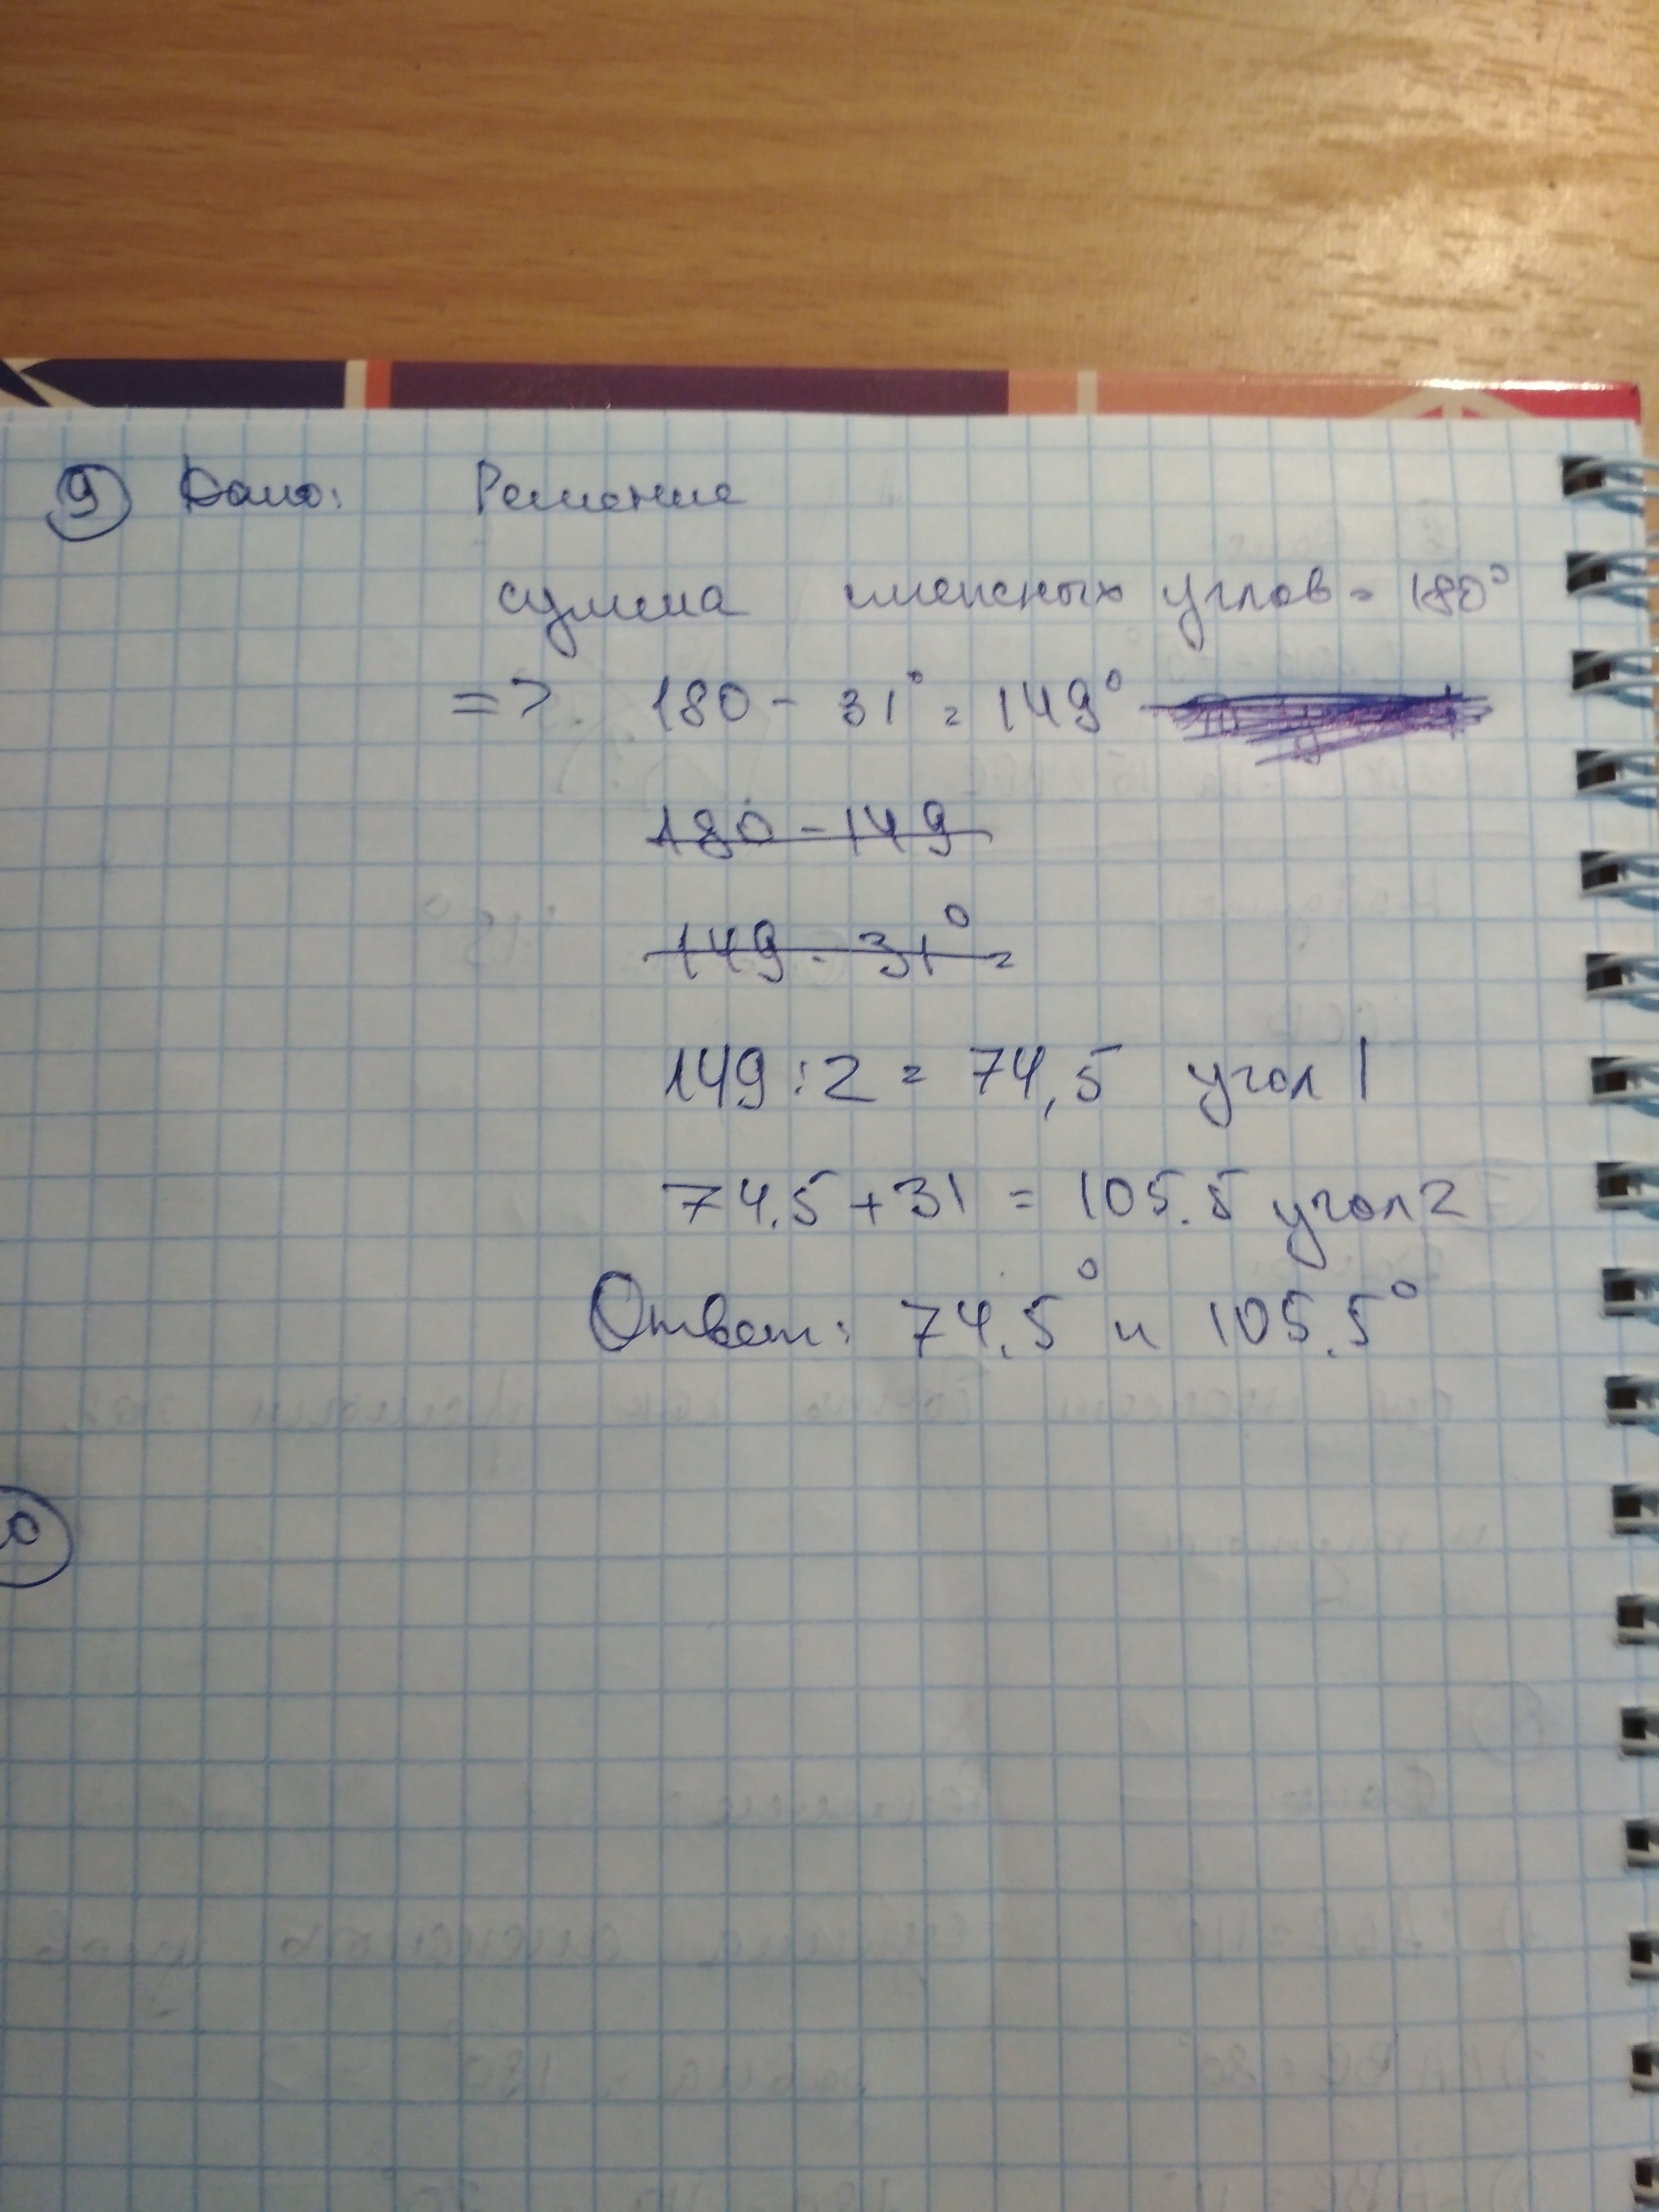 9 Дано: Решение
сумма смежных углов = 180°
=> 180 - 31° = 149°
180 - 149
149 - 31° =
149 : 2 = 74,5 угол 1
74.5 + 31 = 105.5 угол 2
Ответ: 74.5° и 105.5°